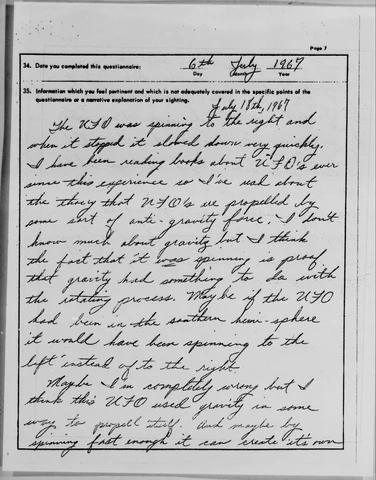 Page 7
34. Date you completed this questionnaire: 6th July 1967
Day Month Year
35. Information which you feel pertinent and which is not adequately covered in the specific points of the
questionnaire or a narrative explanation of your sighting.
July 18th, 1967
The UFO was spinning to the right and
when it stopped it slowed down very quickly.
I have been reading books about UFO's ever
since this experience so I've read about
the theory that UFO's are propelled by
some sort of anti-gravity force. I don't
know much about gravity but I think
the fact that it was spinning is proof
that gravity had something to do with
the rotating process. Maybe if the UFO
had been in the southern hemi-sphere
it would have been spinning to the
left instead of to the right.
Maybe I'm completely wrong but I
think this UFO used gravity in some
way to propell itself. And maybe by
spinning fast enough it can create it's own